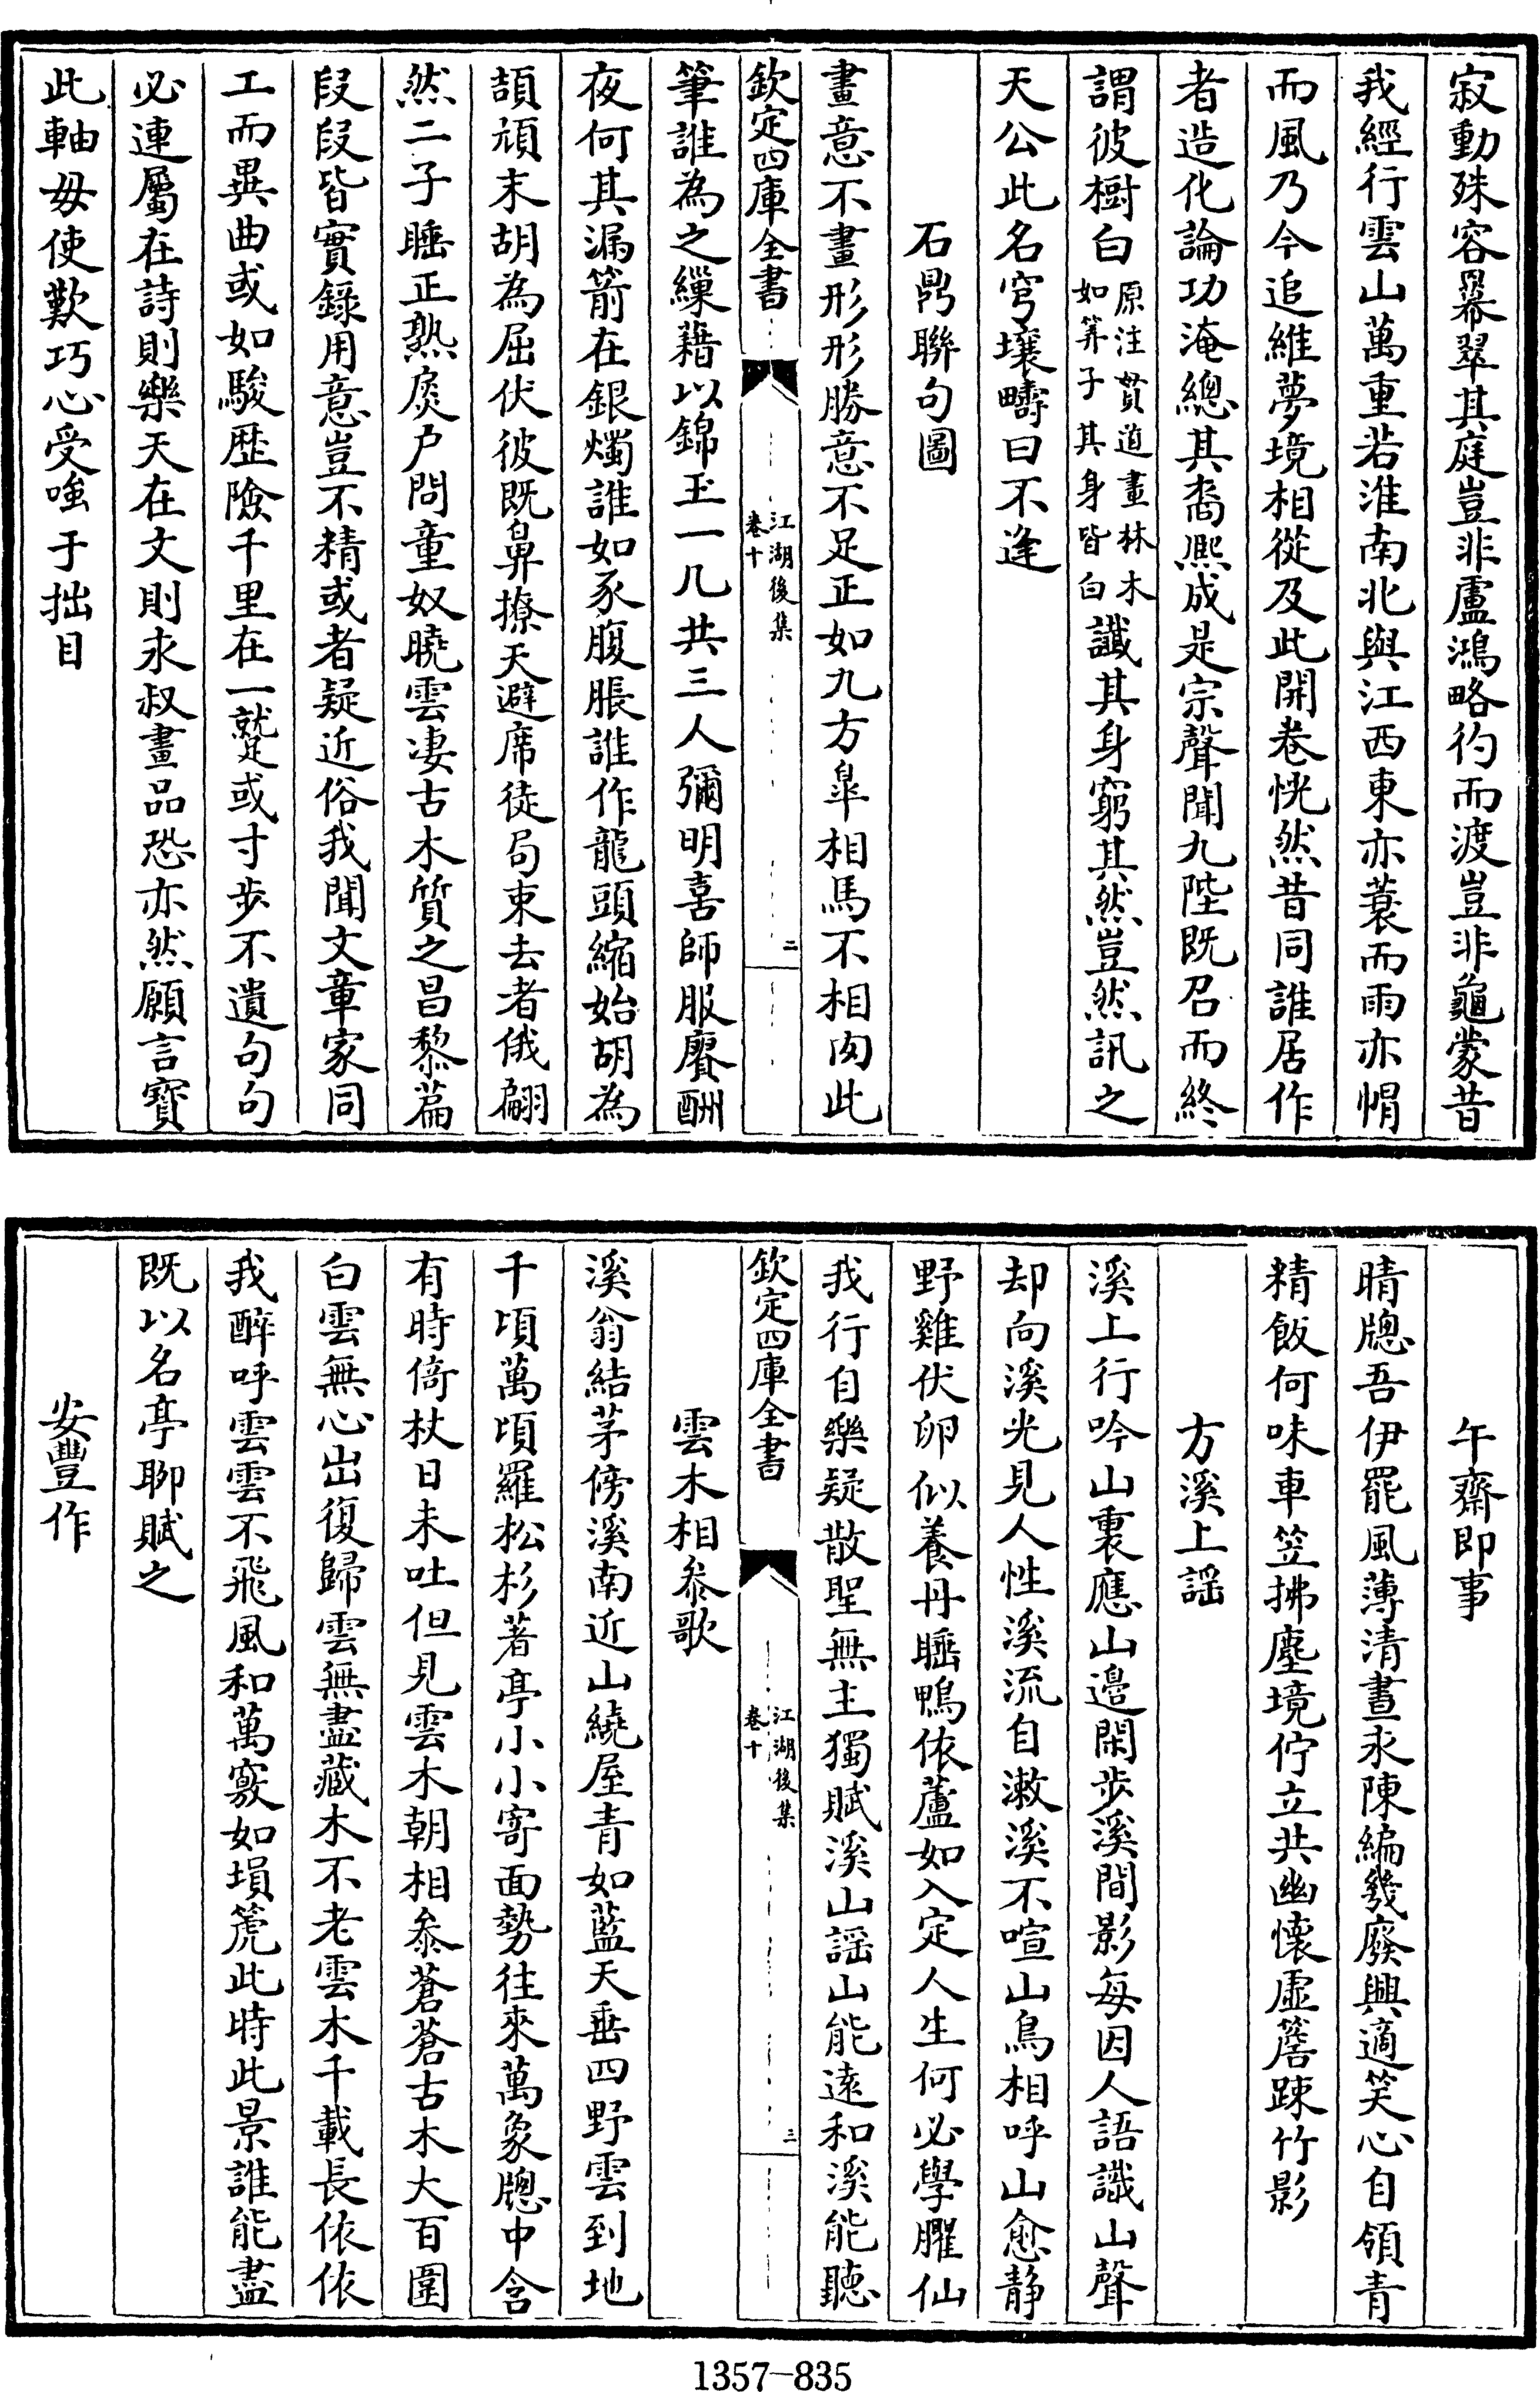 寂動殊容冪翠其庭豈非盧鴻略彴而渡豈非龜蒙昔
我經行雲山萬重若淮南北與江西東亦蓑而雨亦帽
而風乃今追維夢境相從及此開卷恍然昔同誰居作
者造化論功淹總其裔熈成是宗聲聞九陛既召而終
謂彼樹白原注貫道畫林木如筭子其身皆白讖其身窮其然豈然訊之
天公此名穹壤疇曰不逢
石鼎聯句圖
畫意不畫形形勝意不足正如九方臯相馬不相肉此
欽定四庫全書
江湖後集
卷十
二
筆誰為之繅藉以錦玉一几共三人彌明喜師服賡酬
夜何其漏箭在銀燭誰如豕腹脹誰作龍頭縮始胡為
頡頏末胡為屈伏彼既鼻撩天避席徒局束去者俄翩
然二子睡正熟扊户問童奴曉雲凄古木質之昌黎篇
段段皆實錄用意豈不精或者疑近俗我聞文章家同
工而異曲或如駿歴險千里在一蹵或寸步不遺句句
必連屬在詩則樂天在文則永叔畫品恐亦然願言寶
此軸毋使歎巧心受嗤于拙目
午齋即事
晴牕吾伊罷風薄清晝永陳編幾廢興適笑心自領青
精飯何味車笠拂塵境佇立共幽懷虛簷踈竹影
方溪上謡
溪上行吟山裏應山邉閑步溪間影每因人語識山聲
却向溪光見人性溪流自漱溪不喧山鳥相呼山愈静
野雞伏卵似養丹睡鴨依蘆如入定人生何必學臞仙
我行自樂疑散聖無主獨賦溪山謡山能遠和溪能聽
欽定四庫全書
江湖後集
卷十
三
雲木相叅歌
溪翁結茅傍溪南近山繞屋青如藍天垂四野雲到地
千頃萬頃羅松杉著亭小小寄面勢往來萬象牕中含
有時倚杖日未吐但見雲木朝相叅蒼蒼古木大百圍
白雲無心出復歸雲無盡藏木不老雲木千載長依依
我醉呼雲雲不飛風和萬竅如塤箎此時此景誰能盡
既以名亭聊賦之
安豐作
1357-835